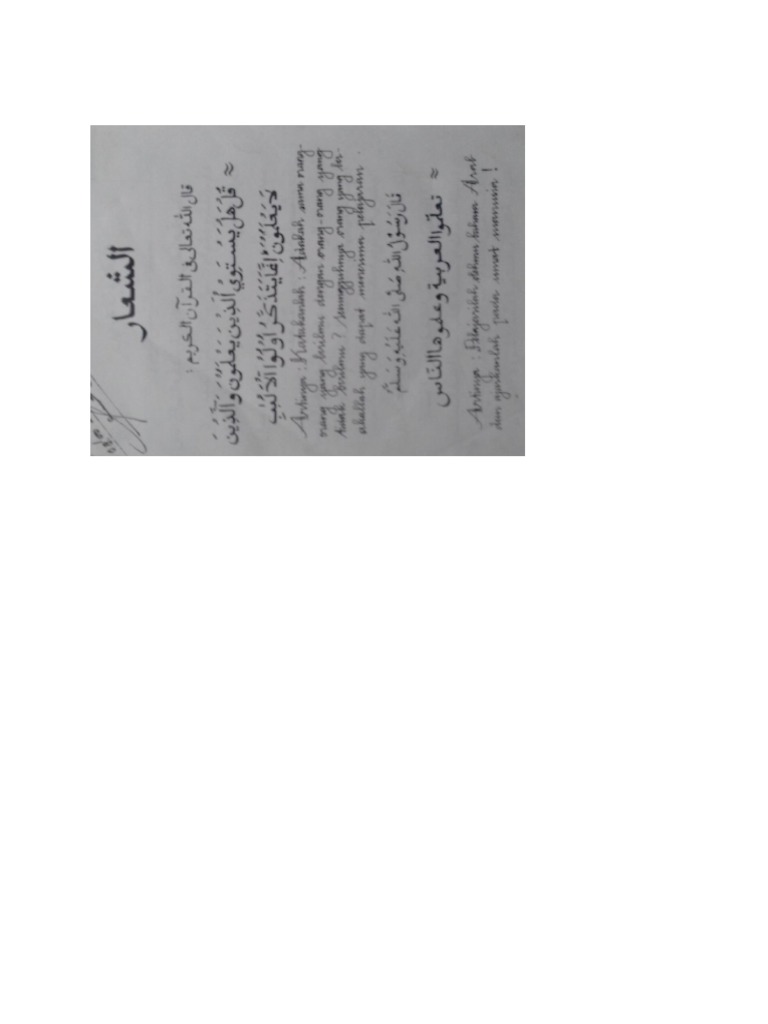 الشعار
قال الله تعالى في القرآن الكريم :
≈ قُلْ هَلْ يَسْتَوِي الَّذِيْنَ يَعْلَمُوْنَ وَالَّذِيْنَ
لَا يَعْلَمُوْنَ اِنَّمَا يَتَذَكَّرُ اُولُوا الْاَلْبٰبِ
Artinya : Katakanlah : Adakah sama orang-
orang yang berilmu dengan orang-orang yang
tidak berilmu ? Sesungguhnya orang yang ber-
akallah yang dapat menerima pelajaran .
قَالَ رَسُوْلُ اللّٰهِ صَلَّى اللّٰهُ عَلَيْهِ وَسَلَّمَ
≈ تعلموا العربية وعلموها الناس
Artinya : Pelajarilah bahasa Arab
dan ajarkanlah pada umat manusia !